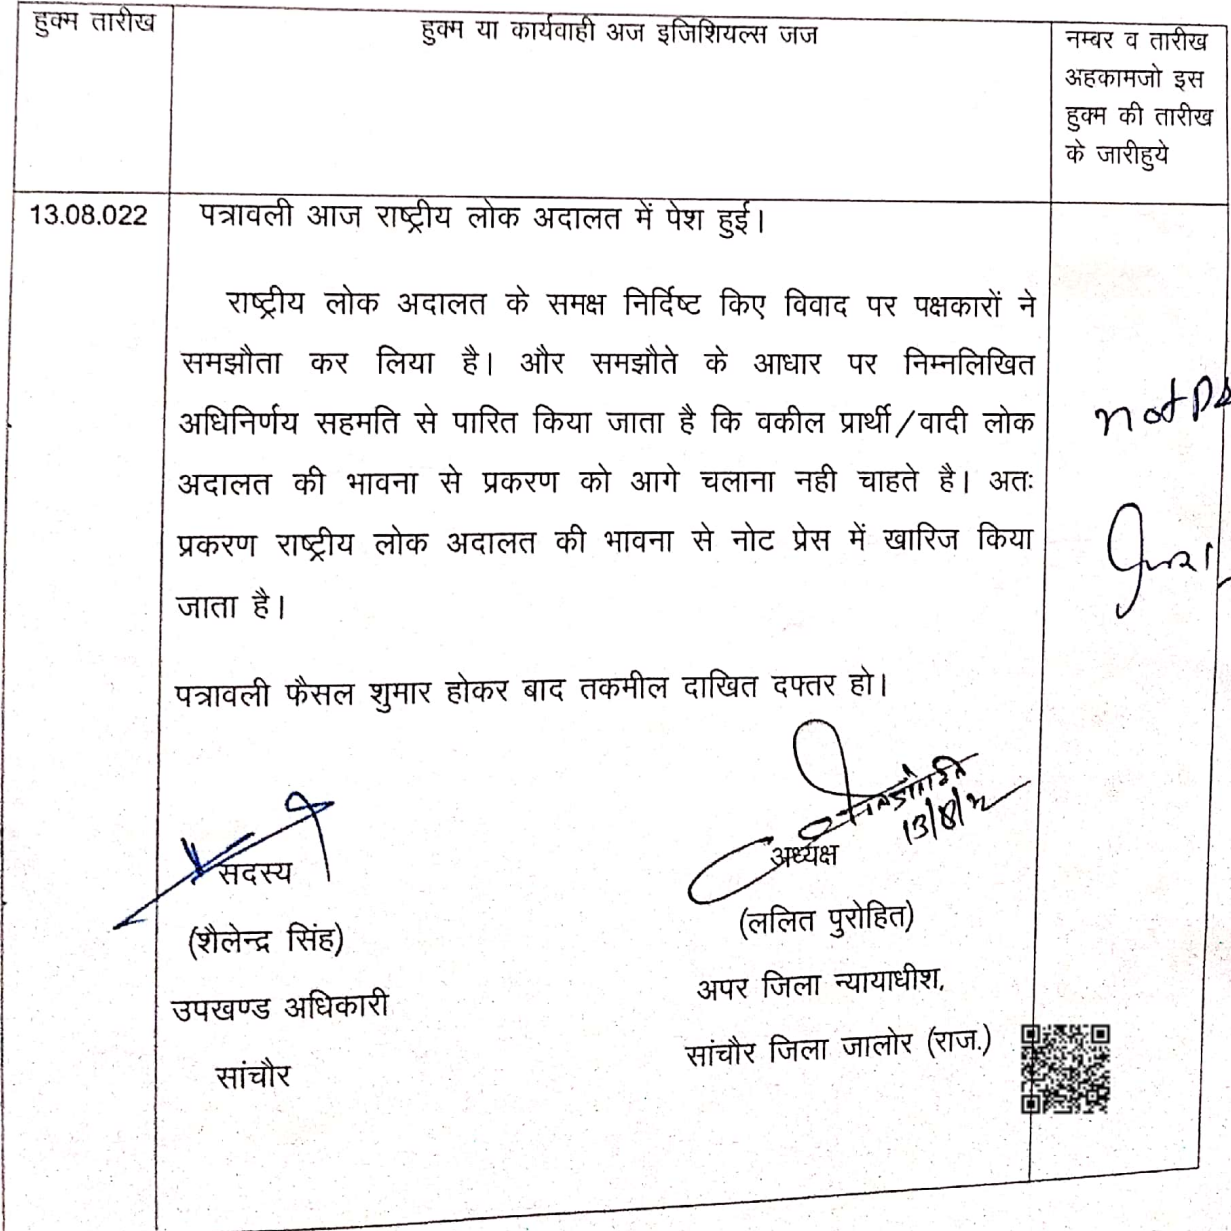 हुक्म तारीख
हुक्म या कार्यवाही अज इजिशियल्स जज
नम्बर व तारीख
अहकामजो इस
हुक्म की तारीख
के जारीहुये
13.08.022
पत्रावली आज राष्ट्रीय लोक अदालत में पेश हुई।
राष्ट्रीय लोक अदालत के समक्ष निर्दिष्ट किए विवाद पर पक्षकारों ने
समझौता कर लिया है। और समझौते के आधार पर निम्नलिखित
अधिनिर्णय सहमति से पारित किया जाता है कि वकील प्रार्थी/वादी लोक
अदालत की भावना से प्रकरण को आगे चलाना नही चाहते है। अतः
प्रकरण राष्ट्रीय लोक अदालत की भावना से नोट प्रेस में खारिज किया
जाता है।
not
पत्रावली फैसल शुमार होकर बाद तकमील दाखित दफ्तर हो।
सदस्य
(शैलेन्द्र सिंह)
उपखण्ड अधिकारी
सांचौर
13/8/2
अध्यक्ष
(ललित पुरोहित)
अपर जिला न्यायाधीश,
सांचौर जिला जालोर (राज.)